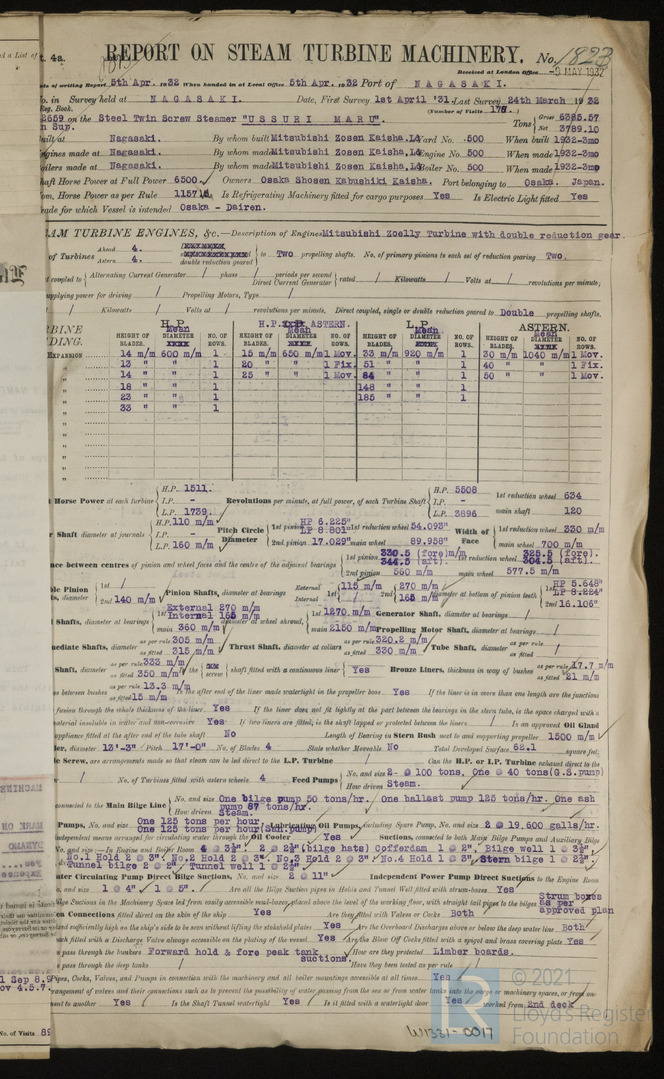 t. 4a.
REPORT ON STEAM TURBINE MACHINERY. No. 1823
Received at London Office -9 MAY 1932
of writing Report 5th Apr. 1932 When handed in at Local Office 5th Apr. 1932 Port of NAGASAKI.
No. in Survey held at NAGASAKI. Date, First Survey 1st April '31. Last Survey 24th March 1932
Reg. Book. (Number of Visits 178.)
2659 on the Steel Twin Screw Steamer "USSURI MARU". Tons Gross 6385.57
n Sup. Net 3789.10
Built at Nagasaki. By whom built Mitsubishi Zosen Kaisha, Ld Yard No. 500 When built 1932-3mo
Engines made at Nagasaki. By whom made Mitsubishi Zosen Kaisha, Ld Engine No. 500 When made 1932-3mo
Boilers made at Nagasaki. By whom made Mitsubishi Zosen Kaisha, Ld Boiler No. 500 When made 1932-3mo
Shaft Horse Power at Full Power 6500. Owners Osaka Shosen Kabushiki Kaisha. Port belonging to Osaka, Japan.
Nom. Horse Power as per Rule 1157 Is Refrigerating Machinery fitted for cargo purposes Yes Is Electric Light fitted Yes
Trade for which Vessel is intended Osaka - Dairen.
STEAM TURBINE ENGINES, &c.—Description of Engines Mitsubishi Zoelly Turbine with double reduction gear.
of Turbines Ahead 4. Astern 4. double reduction geared to Two propelling shafts. No. of primary pinions to each set of reduction gearing Two.
coupled to Alternating Current Generator / phase / periods per second
Direct Current Generator / rated / Kilowatts / Volts at / revolutions per minute;
supplying power for driving / Propelling Motors, Type /
/ Kilowatts / Volts at / revolutions per minute. Direct coupled, single or double reduction geared to Double propelling shafts.
TURBINE BLADING. H.P. H.P. ASTERN. L.P. ASTERN.
HEIGHT OF BLADES. Mean DIAMETER NO. OF ROWS. HEIGHT OF BLADES. Mean DIAMETER NO. OF ROWS. HEIGHT OF BLADES. Mean DIAMETER NO. OF ROWS. HEIGHT OF BLADES. Mean DIAMETER NO. OF ROWS.
EXPANSION 14 m/m 600 m/m 1 15 m/m 650 m/m 1 Mov. 33 m/m 920 m/m 1 30 m/m 1040 m/m 1 Mov.
" 13 " " 1 20 " " 1 Fix. 51 " " 1 40 " " 1 Fix.
" 14 " " 1 25 " " 1 Mov. 84 " " 1 50 " " 1 Mov.
" 18 " " 1 148 " " 1
" 23 " " 1 185 " " 1
" 33 " " 1
Horse Power at each turbine H.P. 1511. I.P. - L.P. 1739. Revolutions per minute, at full power, of each Turbine Shaft H.P. 5508 I.P. - L.P. 3896 1st reduction wheel 634 main shaft 120
Shaft diameter at journals H.P. 110 m/m I.P. - L.P. 160 m/m Pitch Circle Diameter 1st pinion HP 6.225" LP 8.801" 1st reduction wheel 54.093" 2nd pinion 17.029" main wheel 89.958" Width of Face 1st reduction wheel 330 m/m main wheel 700 m/m
between centres of pinion and wheel faces and the centre of the adjacent bearings 1st pinion 330.5 (fore)m/m 344.5 (aft). 2nd pinion 560 m/m 1st reduction wheel 325.5 (fore). 304.5 (aft). main wheel 577.5 m/m
diameter 1st / 2nd 140 m/m Pinion Shafts, diameter at bearings External 1st 115 m/m 2nd 270 m/m Internal 1st / 2nd 165 m/m diameter at bottom of pinion teeth 1st HP 5.648" LP 8.224" 2nd 16.106"
Shafts, diameter at bearings 1st External 270 m/m Internal 165 m/m main 360 m/m diameter at wheel shroud, 1st 1270 m/m main 2150 m/m Generator Shaft, diameter at bearings / Propelling Motor Shaft, diameter at bearings /
Intermediate Shafts, diameter as per rule 305 m/m as fitted 315 m/m Thrust Shaft, diameter at collars as per rule 320.2 m/m as fitted 330 m/m Tube Shaft, diameter as per rule / as fitted /
Shaft, diameter as per rule 333 m/m as fitted 350 m/m Is the screw shaft fitted with a continuous liner Yes Bronze Liners, thickness in way of bushes as per rule 17.7 m/m as fitted 21 m/m
between bushes as per rule 13.3 m/m as fitted 15 m/m Is the after end of the liner made watertight in the propeller boss Yes If the liner is in more than one length are the junctions
fusion through the whole thickness of the liner Yes If the liner does not fit tightly at the part between the bearings in the stern tube, is the space charged with a
material insoluble in water and non-corrosive Yes If two liners are fitted, is the shaft lapped or protected between the liners / Is an approved Oil Gland
appliance fitted at the after end of the tube shaft No Length of Bearing in Stern Bush next to and supporting propeller 1500 m/m
diameter 13'-3" Pitch 17'-0" No. of Blades 4 State whether Moveable No Total Developed Surface 62.1 square feet.
Screw, are arrangements made so that steam can be led direct to the L.P. Turbine / Can the H.P. or I.P. Turbine exhaust direct to the
/ No. of Turbines fitted with astern wheels 4 Feed Pumps No. and size 2- @ 100 tons. One @ 40 tons(G.S.pump) How driven Steam.
connected to the Main Bilge Line No. and size One bilge pump 50 tons/hr. One ballast pump 125 tons/hr. One ash pump 87 tons/hr. How driven Steam.
Pumps, No. and size One 125 tons per hour. One 125 tons per hour(San.pump) Lubricating Oil Pumps, including Spare Pump, No. and size 2 @ 19,600 galls/hr.
independent means arranged for circulating water through the Oil Cooler Yes Suctions, connected to both Main Bilge Pumps and Auxiliary Bilge
No. and size:—In Engine and Boiler Room 4 @ 3½" 2 @ 2½"(bilge hats) Cofferdam 1 @ 2". Bilge well 1 @ 3½"
No.1 Hold 2 @ 3". No.2 Hold 2 @ 3". No.3 Hold 2 @ 3" No.4 Hold 1 @ 3½" Stern bilge 1 @ 2½"
Tunnel bilge 2 @ 2" Tunnel well 1 @ 2½"
Water Circulating Pump Direct Bilge Suctions, No. and size 2 @ 11" Independent Power Pump Direct Suctions to the Engine Room
and size 1 @ 4" 1 @ 5". Are all the Bilge Suction pipes in Holds and Tunnel Well fitted with strum-boxes Yes
Bilge Suctions in the Machinery Space led from easily accessible mud-boxes, placed above the level of the working floor, with straight tail pipes to the bilges Strum boxes as per approved plan
Connections fitted direct on the skin of the ship Yes Are they fitted with Valves or Cocks Both
and sufficiently high on the ship's side to be seen without lifting the stokehold plates Yes Are the Overboard Discharges above or below the deep water line Both
each fitted with a Discharge Valve always accessible on the plating of the vessel Yes Are the Blow Off Cocks fitted with a spigot and brass covering plate Yes
pass through the bunkers Forward hold & fore peak tank suctions. How are they protected Limber boards.
pass through the deep tanks / Have they been tested as per rule
Pipes, Cocks, Valves, and Pumps in connection with the machinery and all boiler mountings accessible at all times Yes
arrangement of valves and their connections such as to prevent the possibility of water passing from the sea or from water tanks into the cargo or machinery spaces, or from one
to another Yes Is the Shaft Tunnel watertight Yes Is it fitted with a watertight door Yes worked from 2nd deck
W1331-0017
© 2021
Lloyd's Register
Foundation
No. of Visits 89